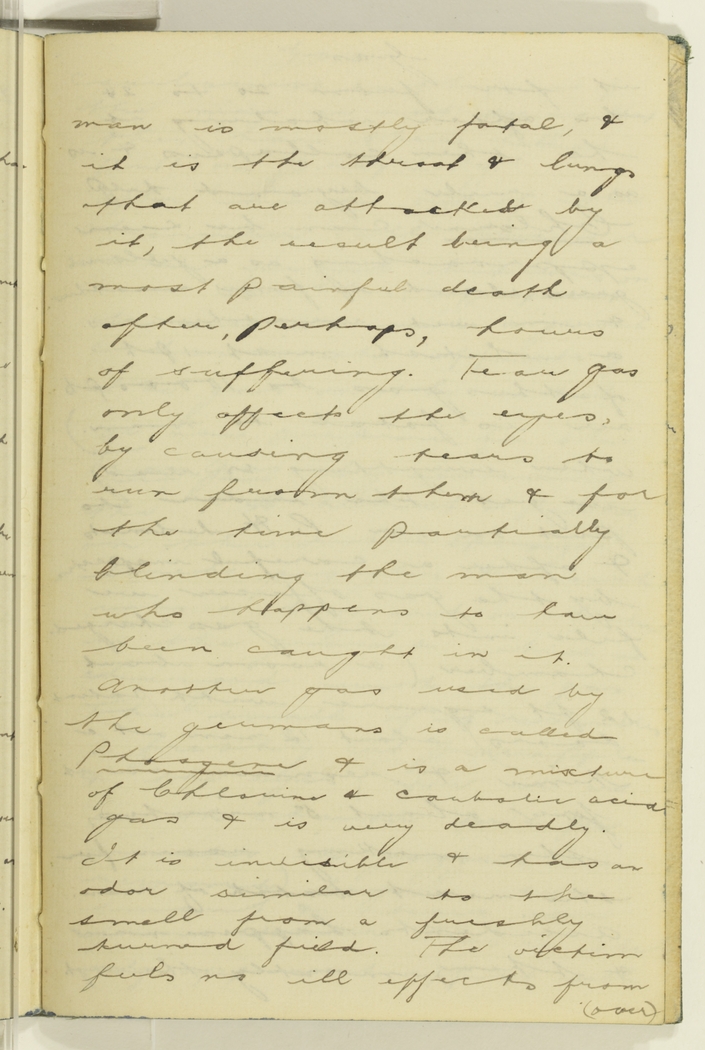 man is mostly fatal, &
it is the throat & lungs
that are attacked by
it, the result being a
most painful death
after, perhaps, hours
of suffering. Tear gas
only affects the eyes,
by causing tears to
run from them & for
the time partially
blinding the man
who happens to have
been caught in it.
Another gas used by
the germans is called
Phosgene & is a mixture
of Chlorine & carbolic acid
gas & is very deadly.
It is invisible & has an
odor similar to the
smell from a freshly
turned field. The victim
feels no ill effects from
(over)